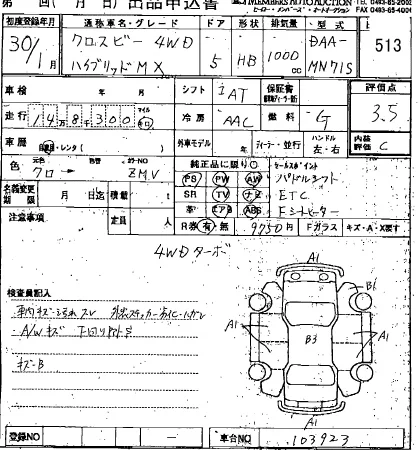 第 回( 月 日) 出品申込書 MEMBERS AUTO AUCTION
初度登録年月 通称車名・グレード ドア 形状 排気量 型式
30/1月 クロスビー 4WD ハイブリッドMX 5 HB 1000 DAA- MN71S 513
車検 年 月 シフト IAT 保証書 評価点
走行 14万8千300 マイル キロ 冷房 AAC 燃料 G 3.5
車歴 自家用・レンタ( ) 外車モデル 年 ディーラー・並行 ハンドル 左・右 内装評価 C
色 元色 クロ → 色替 カラーNO ZMV
純正品に限り○ セールスポイント
PS PW AW パドルシフト
名義変更期限 月 日迄 積載 t SR TV ナビ ETC
注意事項 定員 人 革 エアB ABS Fシートヒーター
R券 有・無 9750円 Fガラス キズ・A・X要す
4WDターボ
検査員記入
A/Wキズ 下回りサビ
キズ-B
A1
B1
A1 A1
B3
A1
登録NO 車台NO 103923